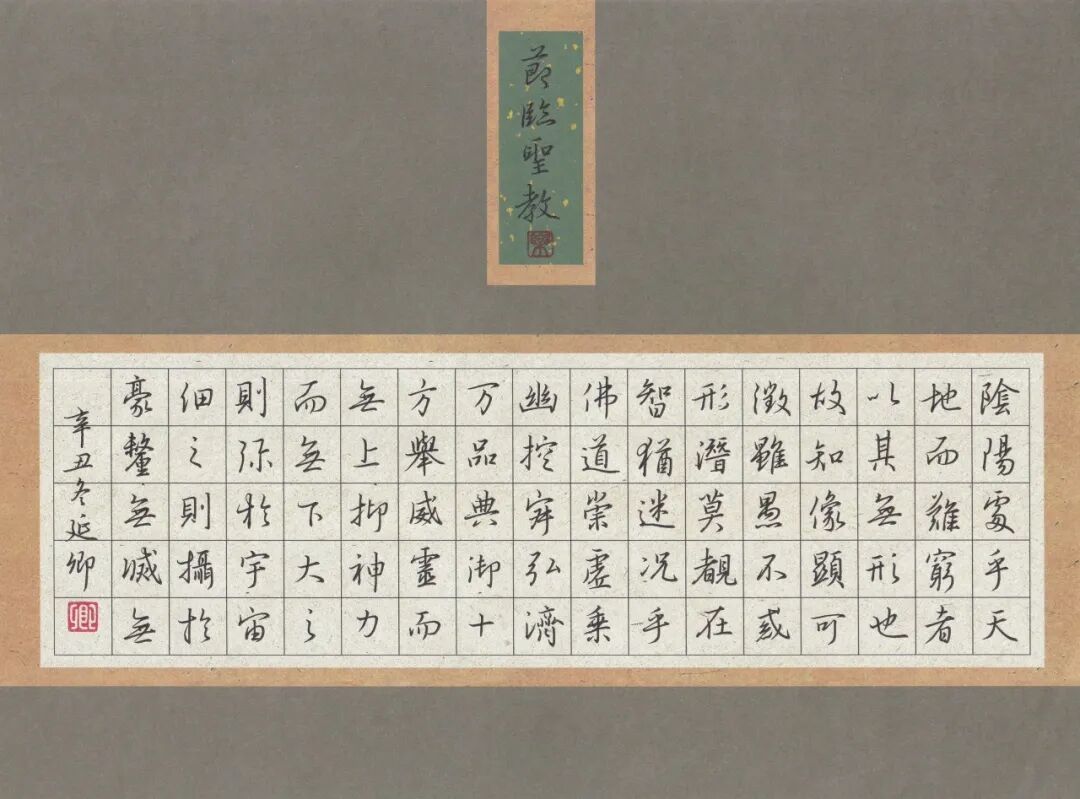 節臨聖教
陰陽處乎天
地而難窮者
以其無形也
故知像顯可
徵雖愚不惑
形潛莫覩在
智猶迷况乎
佛道崇虛乘
幽控寂弘濟
万品典御十
方舉威靈而
無上抑神力
而無下大之
則弥於宇宙
細之則攝於
豪釐無滅無
辛丑冬延卿
卿